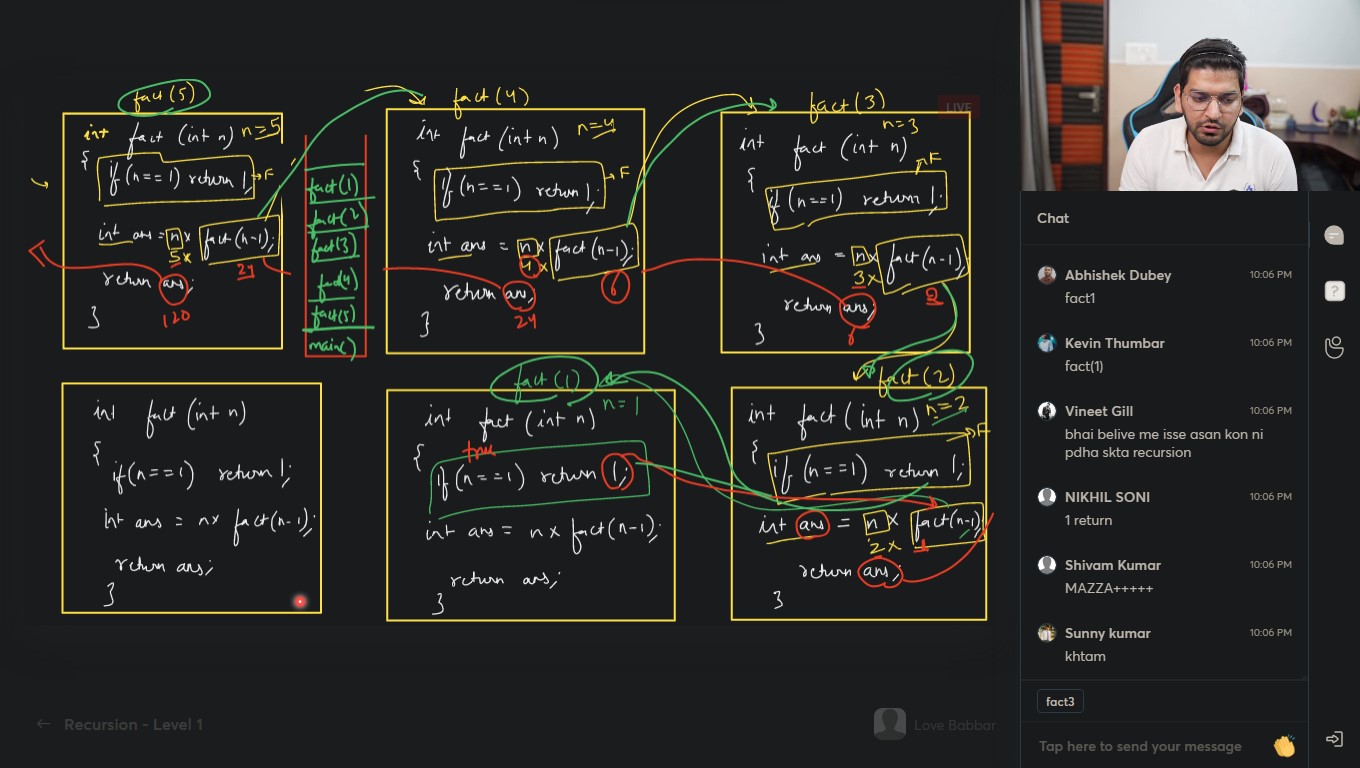 fact(5)
int fact (int n) n=5
{
if(n==1) return 1; → F
int ans = n x fact(n-1);
5x 24
return ans;
120
}
fact(1)
fact(2)
fact(3)
fact(4)
fact(5)
main()
fact(4)
int fact (int n) n=4
{
if(n==1) return 1; → F
int ans = n x fact(n-1);
4x 6
return ans;
24
}
LIVE
fact(3)
n=3
int fact (int n)
{ F
if(n==1) return 1;
int ans = n x fact(n-1);
3x 2
return ans;
6
}
int fact (int n)
{
if(n==1) return 1;
int ans = n x fact(n-1);
return ans;
}
fact(1)
n=1
int fact (int n)
{ true
if(n==1) return 1;
int ans = n x fact(n-1);
return ans;
}
fact(2)
int fact (int n) n=2
{ → F
if(n==1) return 1;
int ans = n x fact(n-1);
2x 1
return ans;
}
Recursion - Level 1
Love Babbar
Chat
Abhishek Dubey 10:06 PM
fact1
Kevin Thumbar 10:06 PM
fact(1)
Vineet Gill 10:06 PM
bhai belive me isse asan kon ni
pdha skta recursion
NIKHIL SONI 10:06 PM
1 return
Shivam Kumar 10:06 PM
MAZZA+++++
Sunny kumar 10:06 PM
khtam
fact3
Tap here to send your message